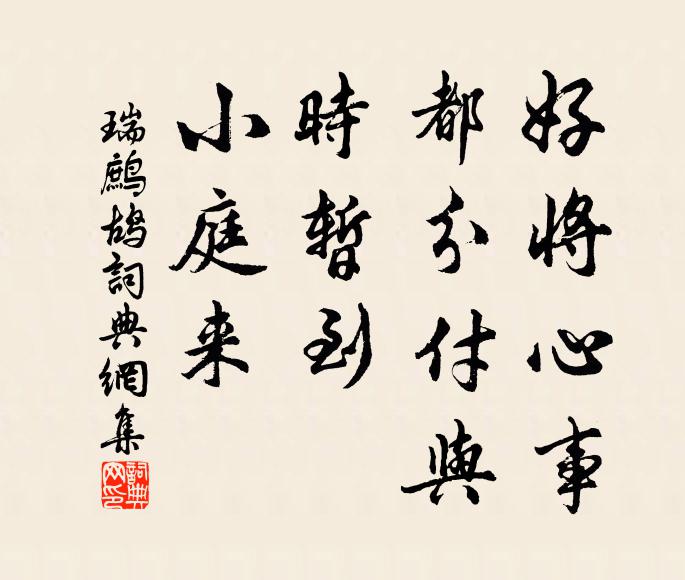 好將心事
都分付與
時暫到
小庭来
瑞鷓鴣詞典網集
詞典網印